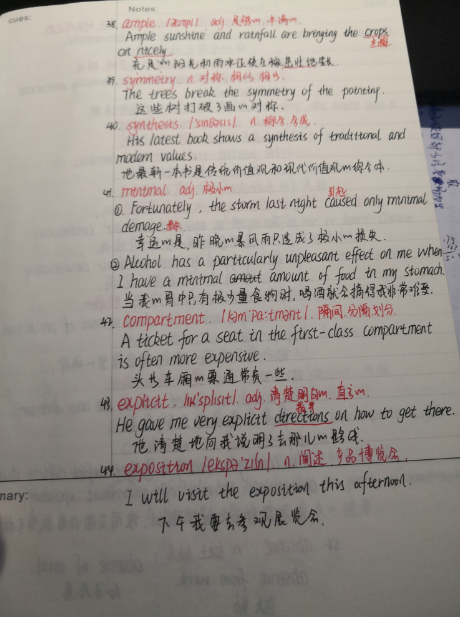 cues:
Notes
38. ample /æmpl/ adj 足够的. 丰满的.
Ample sunshine and rainfall are bringing the crops
on nicely. 庄稼
充足的阳光和雨水正使庄稼茁壮地成长.
39. symmetry. n 对称. 相似. 相当.
The trees break the symmetry of the painting.
这些树打破了画的对称.
40. synthesis. n. 综合. 合成.
His latest book shows a synthesis of traditional and
modern values.
他最新一本书是传统价值观和现代价值观的综合体.
41. minimal adj. 极小的
引起
①. Fortunately, the storm last night caused only minimal
damage.
幸运的是, 昨晚的暴风雨只造成了极小的损失.
② Alcohol has a particularly unpleasant effect on me when
I have a minimal amount of food in my stomach.
当我的胃中只有极少量食物时, 喝酒就会搞得我非常难受.
42. compartment. /kəmˈpɑːtmənt/. 隔间. 分隔. 划分.
A ticket for a seat in the first-class compartment
is often more expensive.
头等车厢的票通常贵一些.
43. explicit. /ɪkˈsplɪsɪt/. adj. 清楚明白的. 直言的.
He gave me very explicit directions on how to get there.
他清楚地向我说明了去那儿的路线.
44. exposition /ekspəˈzɪʃn/ n. 阐述. 产品博览会.
mary:
I will visit the exposition this afternoon.
下午我要去参观展览会.